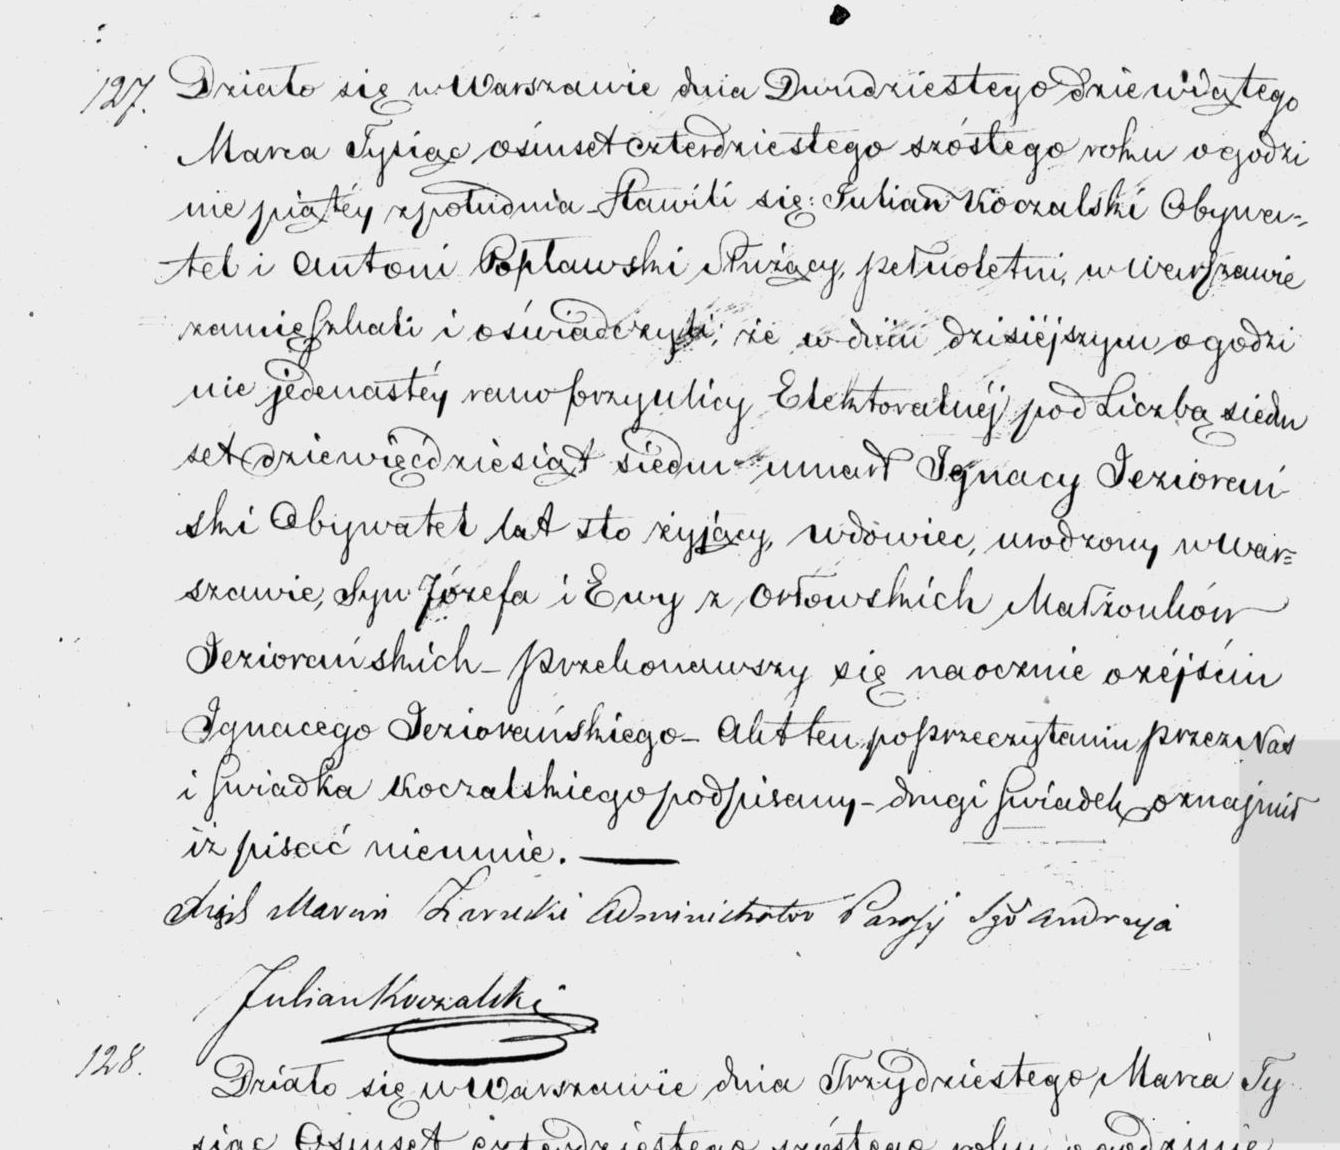 127. Działo się w Warszawie dnia Dwudziestego dziewiątego
Marca Tysiąc ośmset czterdziestego szóstego roku o godzi
nie piątéy z południa – Stawili się: Julian Koczalski Obywa-
tel i Antoni Popławski Służący, pełnoletni, w Warszawie
zamięszkali i oświadczyli, że w dniu dzisiéjszym o godzi
nie jedenastéy rano przy ulicy Elektoralnéj pod Liczbą siedm
set dziewięćdziesiąt siedm umarł Ignacy Jeziorań
ski Obywatel lat sto żyjący, wdowiec, urodzony w War=
szawie, Syn Józefa i Ewy z Orłowskich Małżonków
Jeziorańskich – Przekonawszy się naocznie o zéjściu
Ignacego Jeziorańskiego – Akt ten po przeczytaniu przez Nas
i Swiadka Koczalskiego podpisany – drugi Swiadek oznajmił
iż pisać nieumie. —
Marcin Administrator Andrzeja
Julian Koczalski
128. Działo się w Warszawie dnia Trzydziestego Marca Ty
siąc Ośmset czterdziestego szóstego roku o godzinie